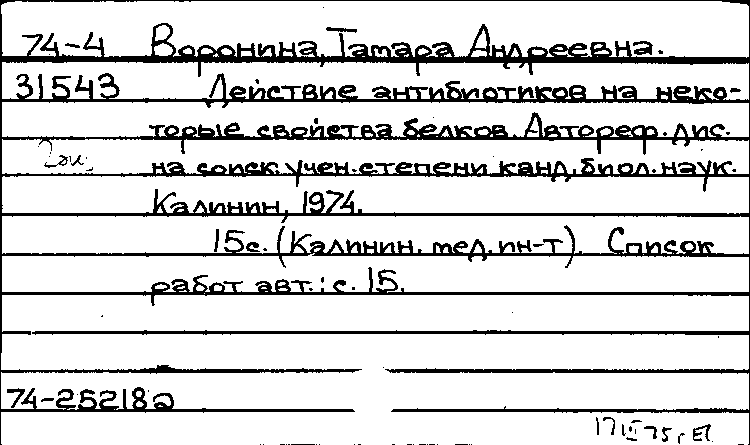 74-4 Воронина, Тамара Андреевна.
31543 Действие антибиотиков на неко-
торые свойства белков. Автореф. дис.
2эк. на соиск. учен. степени канд. биол. наук.
Калинин, 1974.
15с. (Калинин. мед. ин-т). Список
работ авт.: с. 15.
74-25218а